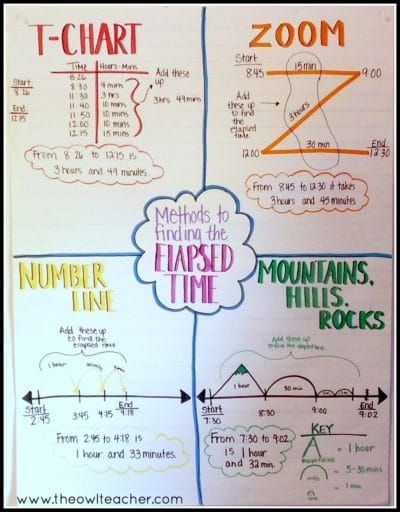 T-CHART
Time Hours-Mins
8:26
8:30 4 mins
11:30 3 hrs
11:40 10 mins
11:50 10 mins
12:00 10 mins
12:15 15 mins
Start
8:26
End
12:15
Add these
up
3hrs 49mins
From 8:26 to 12:15 is
3 hours and 49 minutes.
ZOOM
Start
8:45
15 min
9:00
Add these
up to find
the
elapsed
time
3 hours
30 min
12:00
End
12:30
From 8:45 to 12:30 it takes
3 hours and 45 minutes
Methods to
finding the
ELAPSED
TIME
NUMBER
LINE
Add these up
to find the
elapsed time
1 hour
Start
2:45
3:45
4:15
End
4:18
From 2:45 to 4:18 is
1 hour and 33 minutes.
MOUNTAINS,
HILLS,
ROCKS
Add these up
to find the elapsed time.
1 hour
30 min
Start
7:30
8:30
9:00
End
9:02
From 7:30 to 9:02
is 1 hour
and 32 min.
KEY
mountains
= 1 hour
hills
= 5-30 mins
rock
= 1 min
www.theowlteacher.com